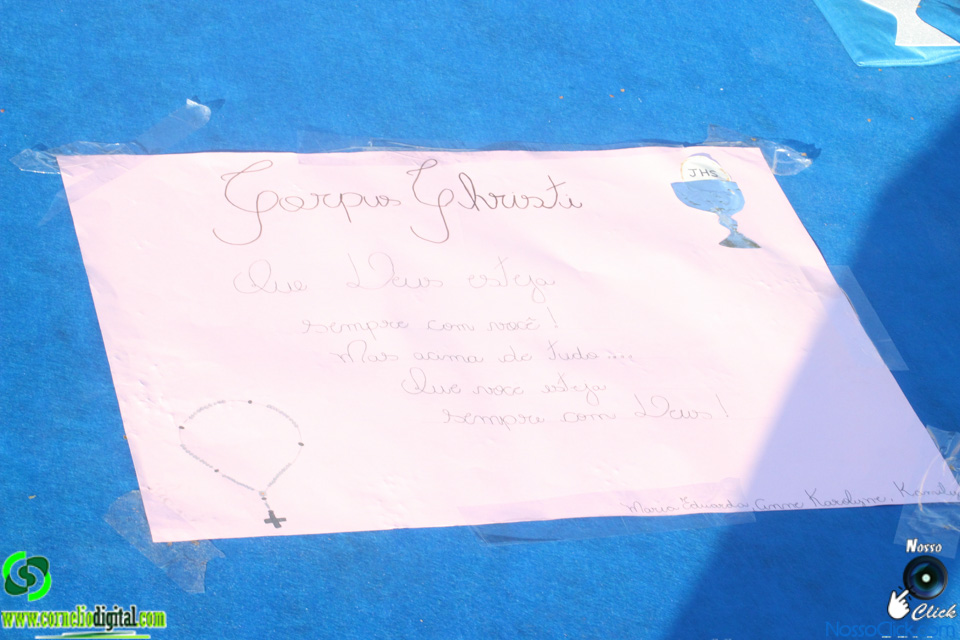 Corpus Christi
JHS
Que Deus esteja
sempre com você!
Mas acima de tudo...
Que você esteja
sempre com Deus!
Maria Eduarda, Anne Karolyne,
www.corneliodigital.com
Nosso
Click
NossoClick.com